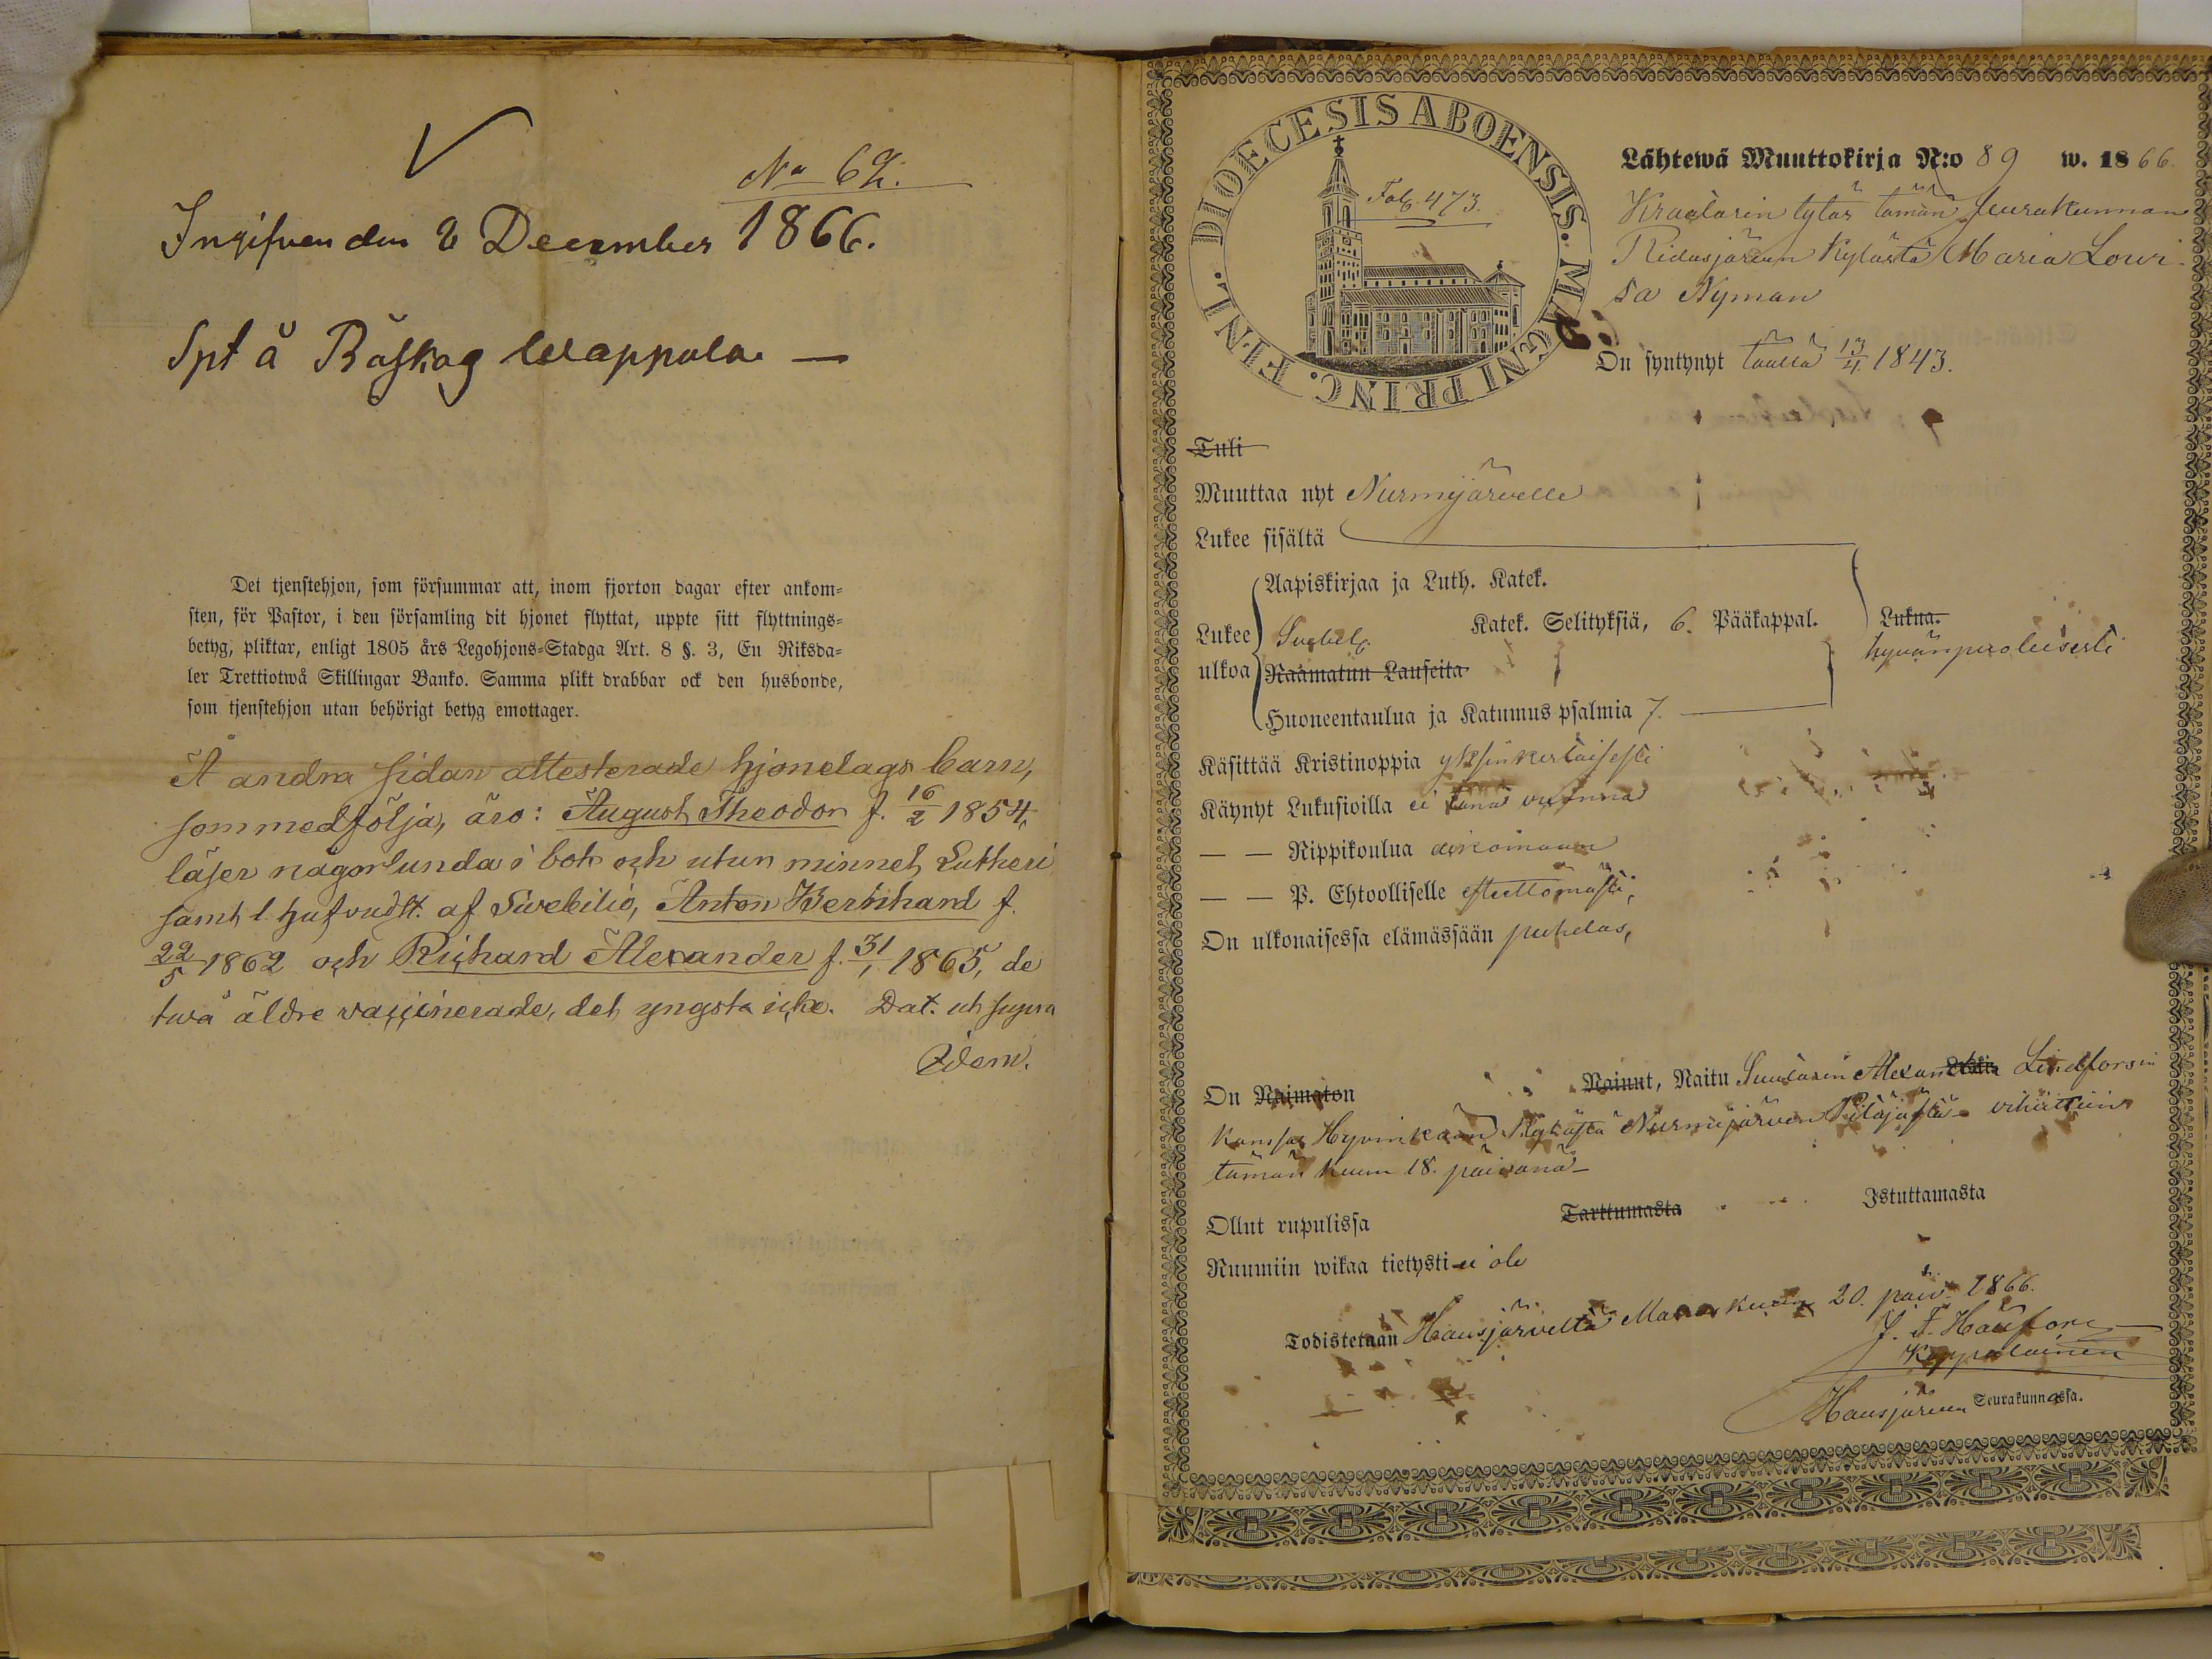 No 62.
Ingifven den 2 December 1866.
Spt å Råskog Wappula —
Det tjenstehjon, som försummar att, inom fjorton dagar efter ankom-
sten, för Pastor, i den församling dit hjonet flyttat, uppte sitt flyttnings-
betyg, pliktar, enligt 1805 års Legohjons-Stadga Art. 8 §. 3, En Riksda-
ler Trettiotwå Skillingar Banko. Samma plikt drabbar ock den husbonde,
som tjenstehjon utan behörigt betyg emottager.
Å andra sidan attesterade hjonelags barn,
som medfölja, äro: August Theodor f. 16/2 1854,
läser någorlunda i bok och utur minnet Lutheri
samt 1 hufvudst. af Swebilio, Anton Bernhard f.
22/5 1862 och Richard Alexander f. 31/1 1865, de
twå äldre vaccinerade, det yngsta icke. Dat. ut supra
Idem.
DIOECESIS ABOENSIS. MAGNI PRINC. FINL.
Fol. 473.
Lähtewä Muuttokirja N:o 89 w. 1866.
Kraatarin tytär tämän seurakunnan
Ridasjärven kylästä Maria Lowi-
sa Nyman
On syntynyt täällä 13/4 1843.
Tuli
Muuttaa nyt Nurmijärvelle
Lukee sisältä
Aapiskirjaa ja Luth. Katek.
Lukee ulkoa Svebel. Katek. Selityksiä, 6. Pääkappal. Lukua.
hyvänpuoleisesti
Raamatun Lauseita
Huoneentaulua ja Katumus psalmia 7.
Käsittää Kristinoppia yksinkertaisesti
Käynyt Lukusioilla ei tänä vuonna
— — Rippikoulua
— — P. Ehtoolliselle esteettömästi,
On ulkonaisessa elämässään puhdas,
On Naimaton Nainut, Naitu Suutarin Alexander Lindforsin
kanssa Hyvinkään kylästä Nurmijärven Pitäjästä vihittiin
tämän kuun 18. päivänä —
Ollut rupulissa Tarttumasta Istuttamasta
Ruumiin wikaa tietysti ei ole
Todistetaan Hausjärveltä Marraskuun 20. päiv. 1866.
J. F.
Kappalainen
Hausjärven Seurakunnassa.